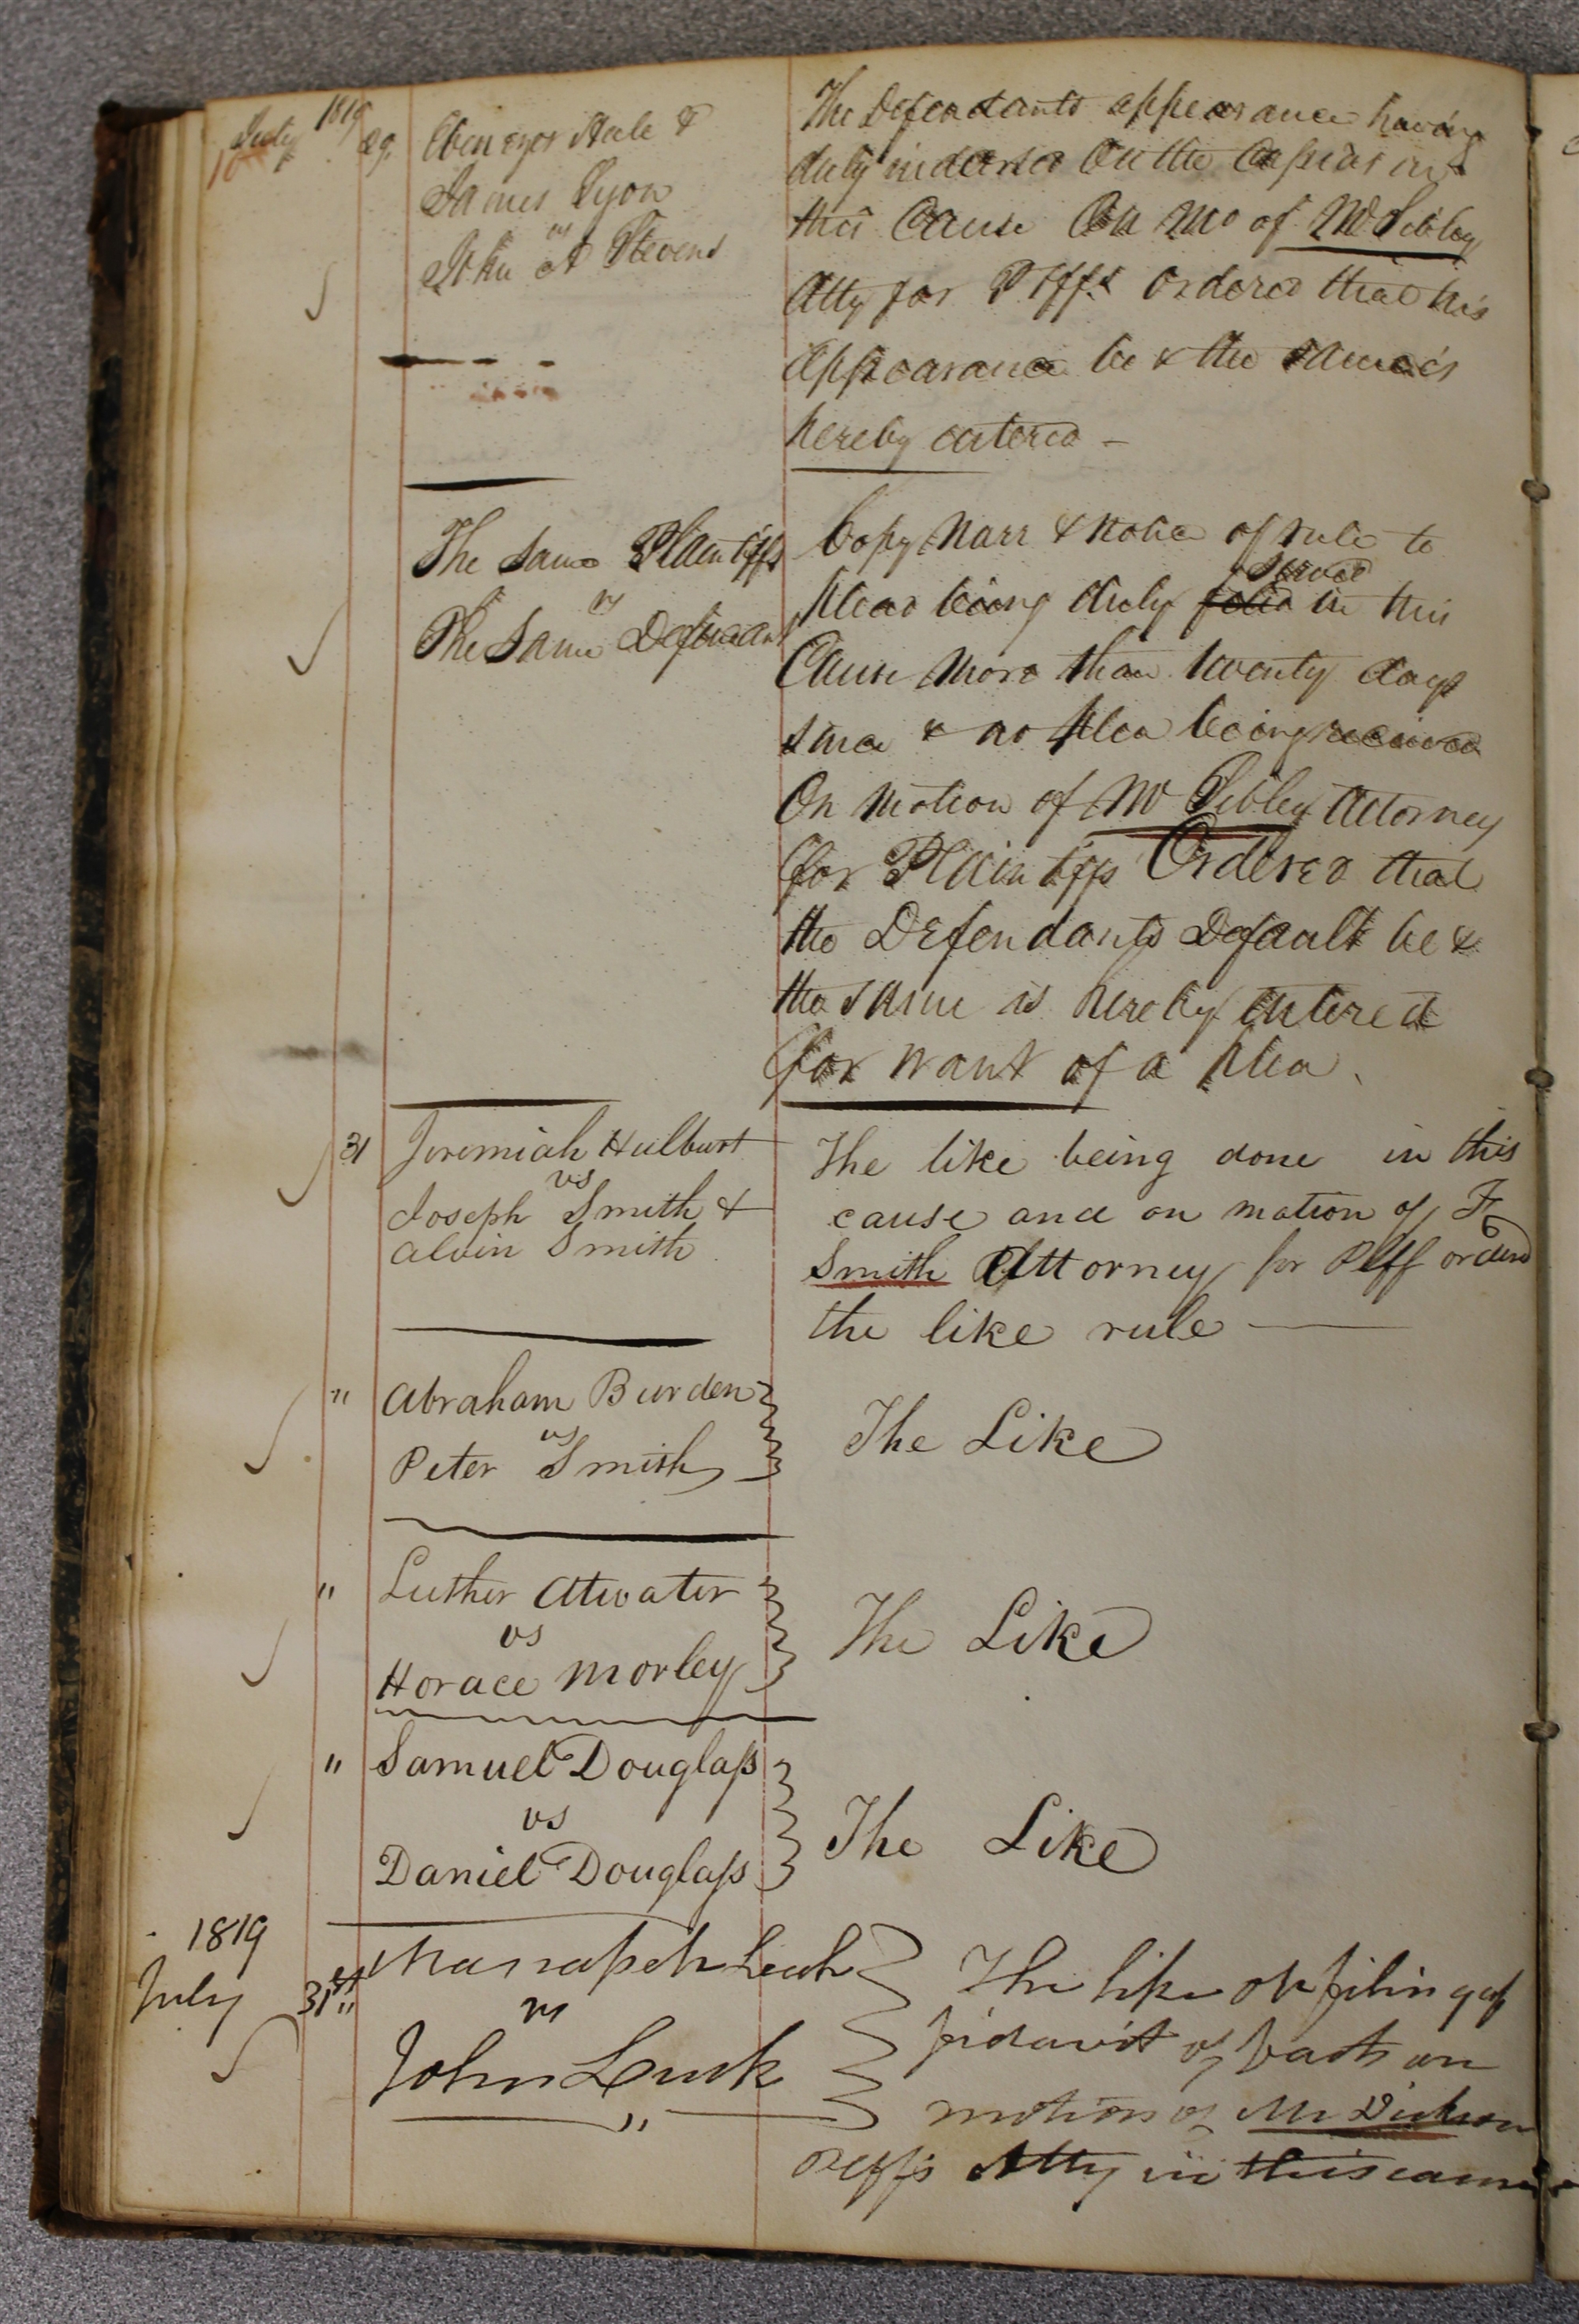 1819
July 29.
Ebenezer Hale &
James Lyon
vs
John A Stevens
The Defendants appearance having
duly indorsed On the Capias in
this Cause On mo of Mr Sibley
Atty for Plffs Ordered that his
appearance be & the same is
hereby entered –
The same Plaintiffs
vs
The Same Defendant
Copy Narr & notice of rule to
served
plead being duly filed in this
Cause more than twenty days
since & no plea being received
On motion of Mr Sibley Attorney
for Plaintiffs Ordered that
the Defendants Default be &
the same is hereby entered
for want of a plea.
31 Jeremiah Hulburt
vs
Joseph Smith &
Alvin Smith
The like being done in this
cause and on motion of F
Smith Attorney for Plff orderd
the like rule
" Abraham Burden
vs
Peter Smith
The Like
" Luther Atwater
vs
Horace Morley
The Like
" Samuel Douglass
vs
Daniel Douglass
The Like
1819
July 31st
" Manasseh Leach
vs
John Lusk
"
The like on filing af
fidavit of facts on
motion of Mr Dickson
Plffs Atty in this cause